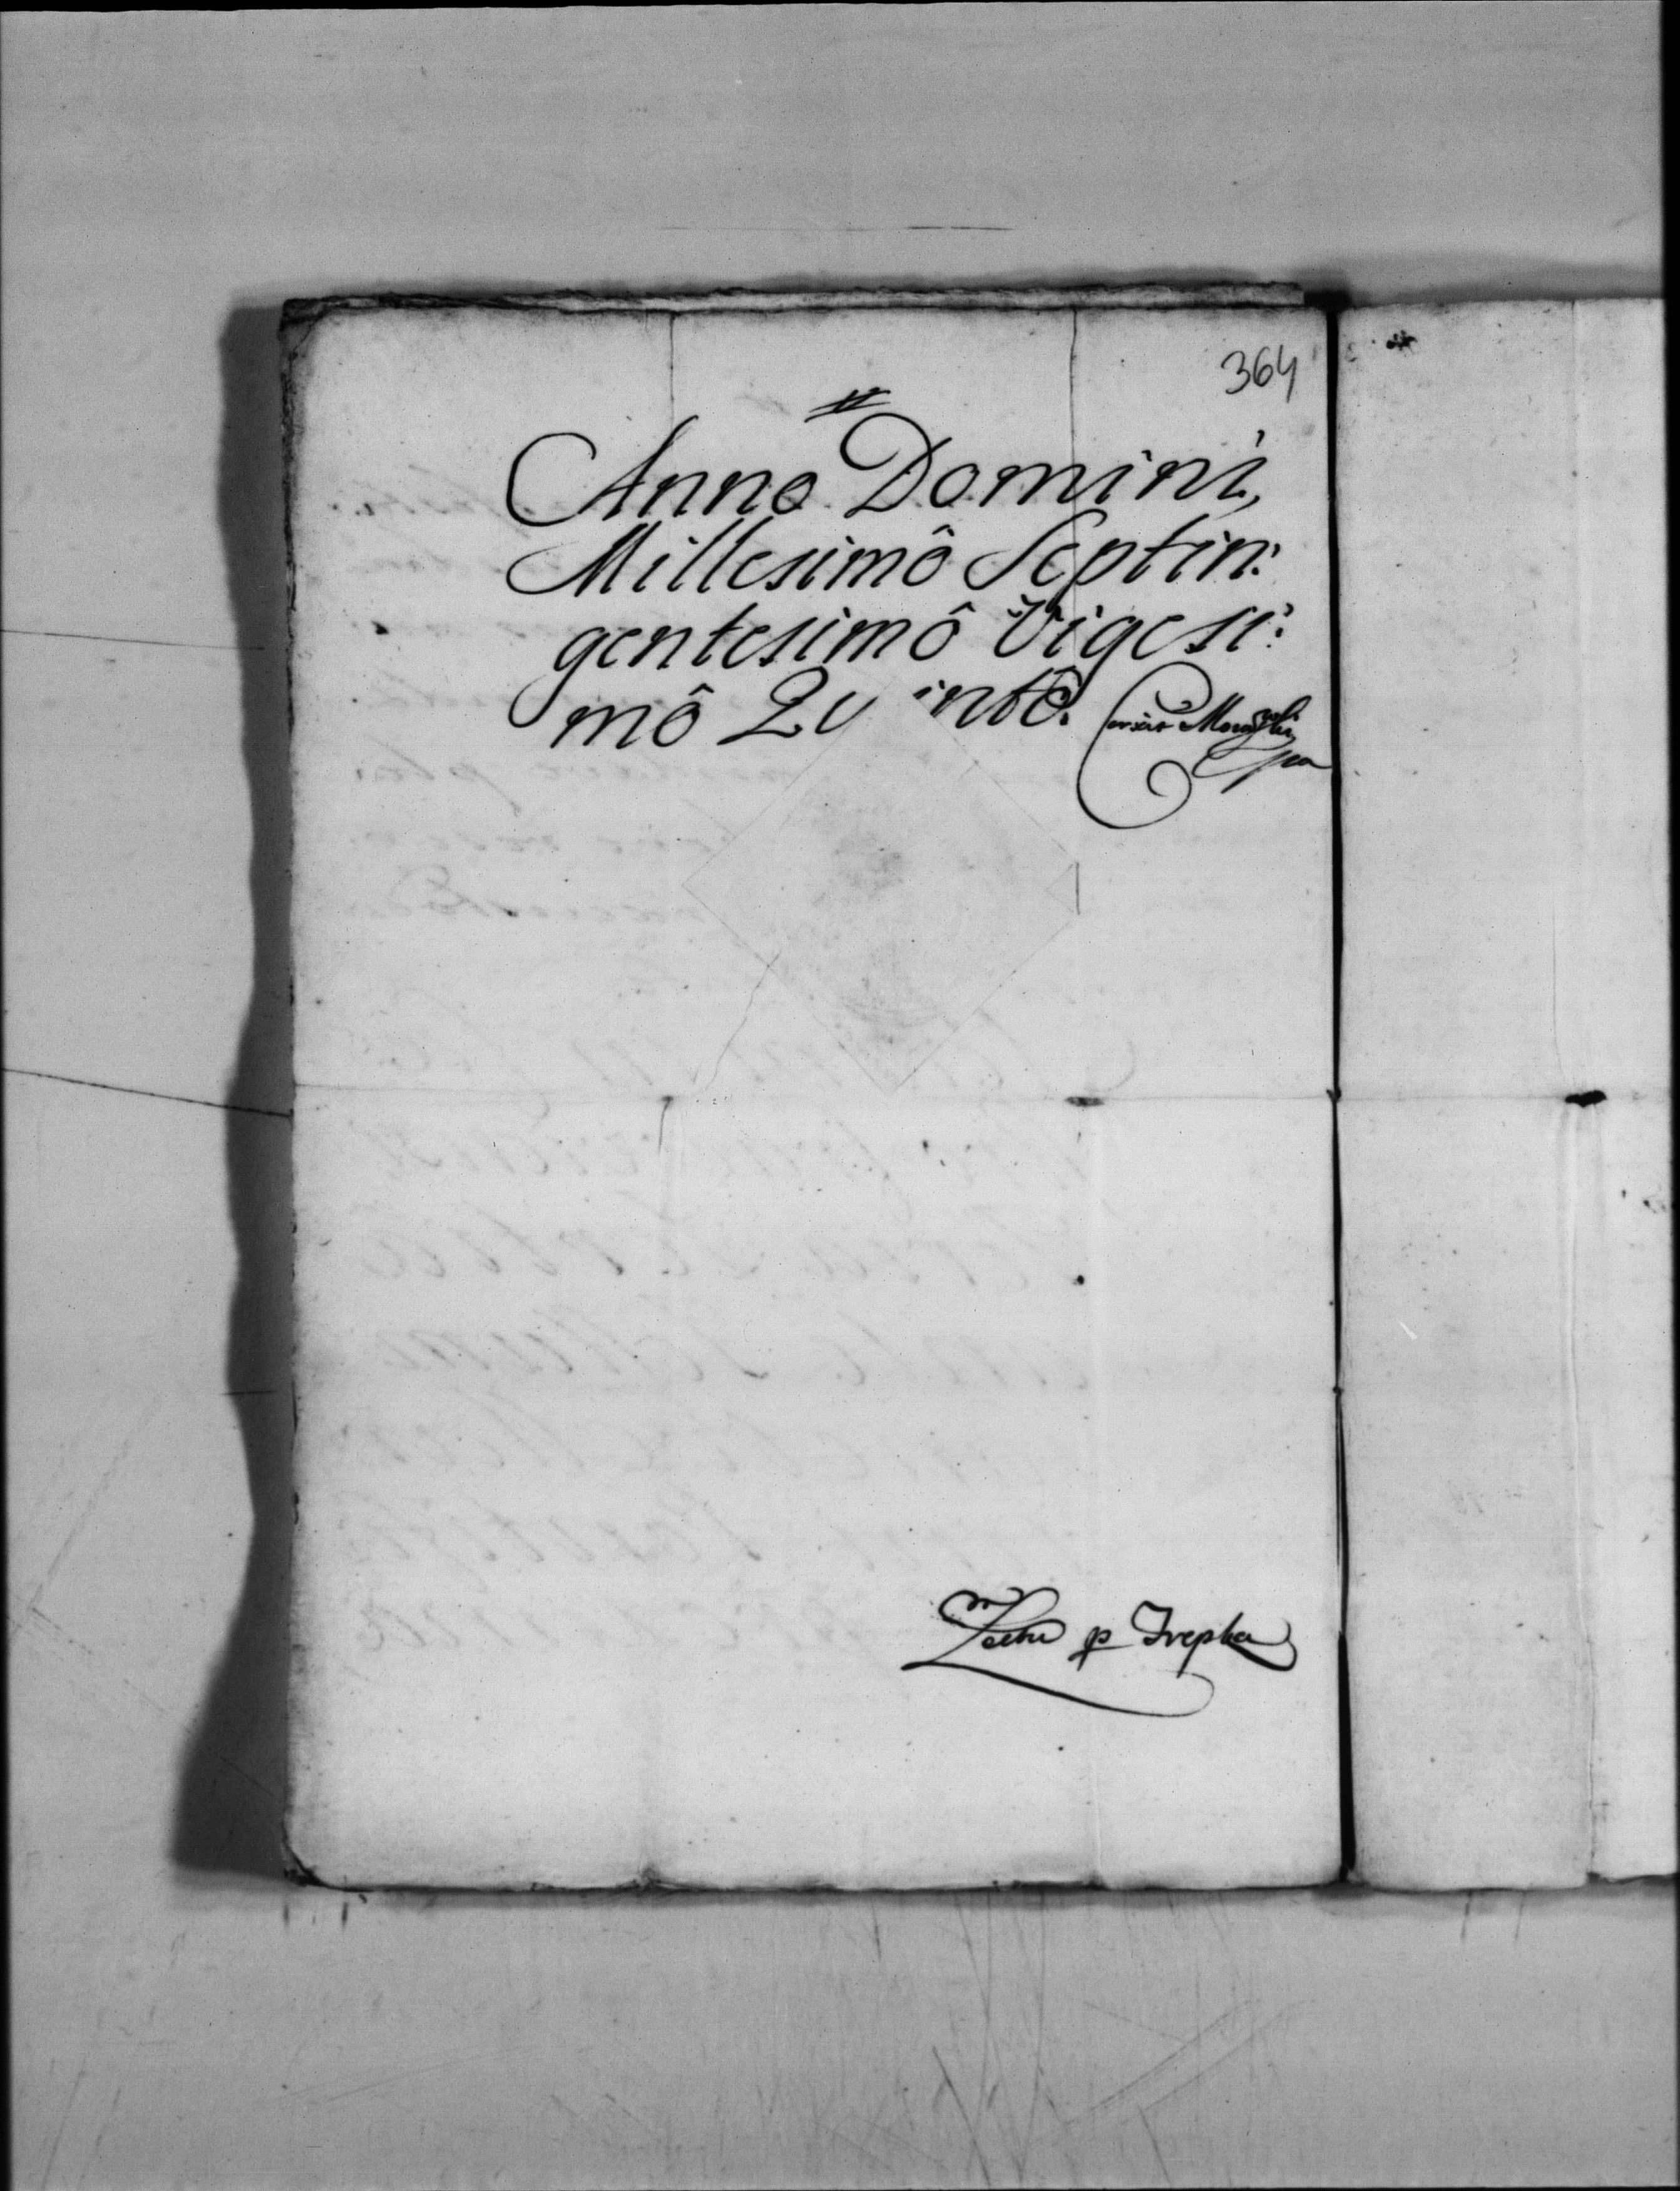 364
Anno Domini,
Millesimô Septin:
gentesimô Vigesi:
mô Quintô. Corexit
Lectu p Trepka